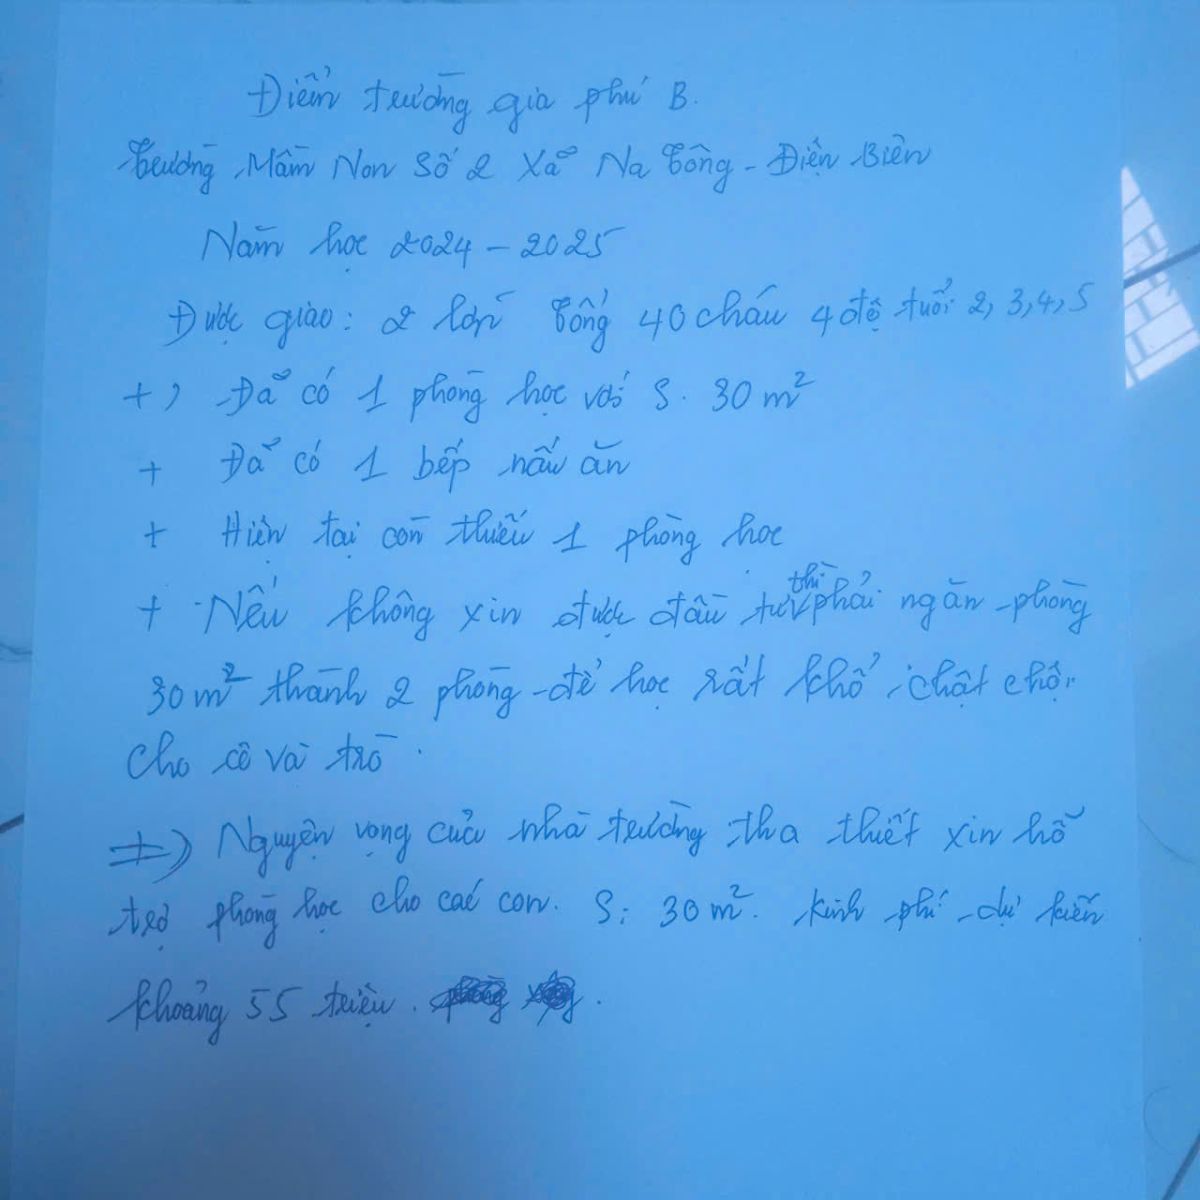 Điểm trường gia phú B.
Trường Mầm Non Số 2 Xã Na Tông - Điện Biên
Năm học 2024 - 2025
Được giao: 2 lớp Tổng 40 cháu 4 độ tuổi 2, 3, 4, 5
+) Đã có 1 phòng học với S. 30 m²
+ Đã có 1 bếp nấu ăn
+ Hiện tại còn thiếu 1 phòng học
+ Nếu không xin được đầu tư thì phải ngăn phòng
30 m² thành 2 phòng để học rất khổ, chật chội
cho cô và trò.
=> Nguyện vọng của nhà trường tha thiết xin hỗ
trợ phòng học cho các con. S: 30 m². Kinh phí dự kiến
khoảng 55 triệu.